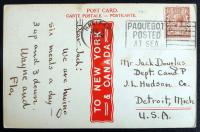 POST CARD.
CARTE POSTALE - POSTKARTE.
PAQUEBOT
POSTED
AT SEA
TO NEW YORK
& CANADA
Dear Jack:
We are having
six meals a day —
3 up and 3 down.
Wayne and
Fla.
Mr. Jack Douglas
Dept. Cand P
J. L. Hudson Co.
Detroit, Mich.
U.S.A.